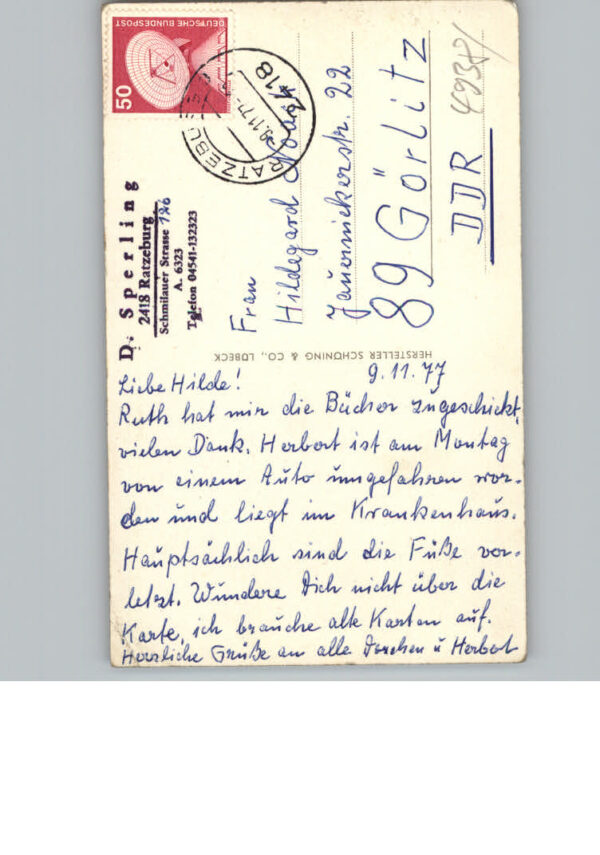 DEUTSCHE BUNDESPOST
50
2418 RATZEBU
-9.11.77
D. Sperling
2418 Ratzeburg
Schmilauer Strasse 126
A. 6323
Telefon 04541-132323
Frau
Hildegard
Jauernickerstr. 22
89 Görlitz
DDR
HERSTELLER SCHÖNING & CO., LÜBECK
9.11.77
Liebe Hilde!
Ruth hat mir die Bücher zugeschickt,
vielen Dank. Herbert ist am Montag
von einem Auto umgefahren wor-
den und liegt im Krankenhaus.
Hauptsächlich sind die Füße ver-
letzt. Wundere Dich nicht über die
Karte, ich brauche alte Karten auf.
Herzliche Grüße an alle Dorchen u Herbert